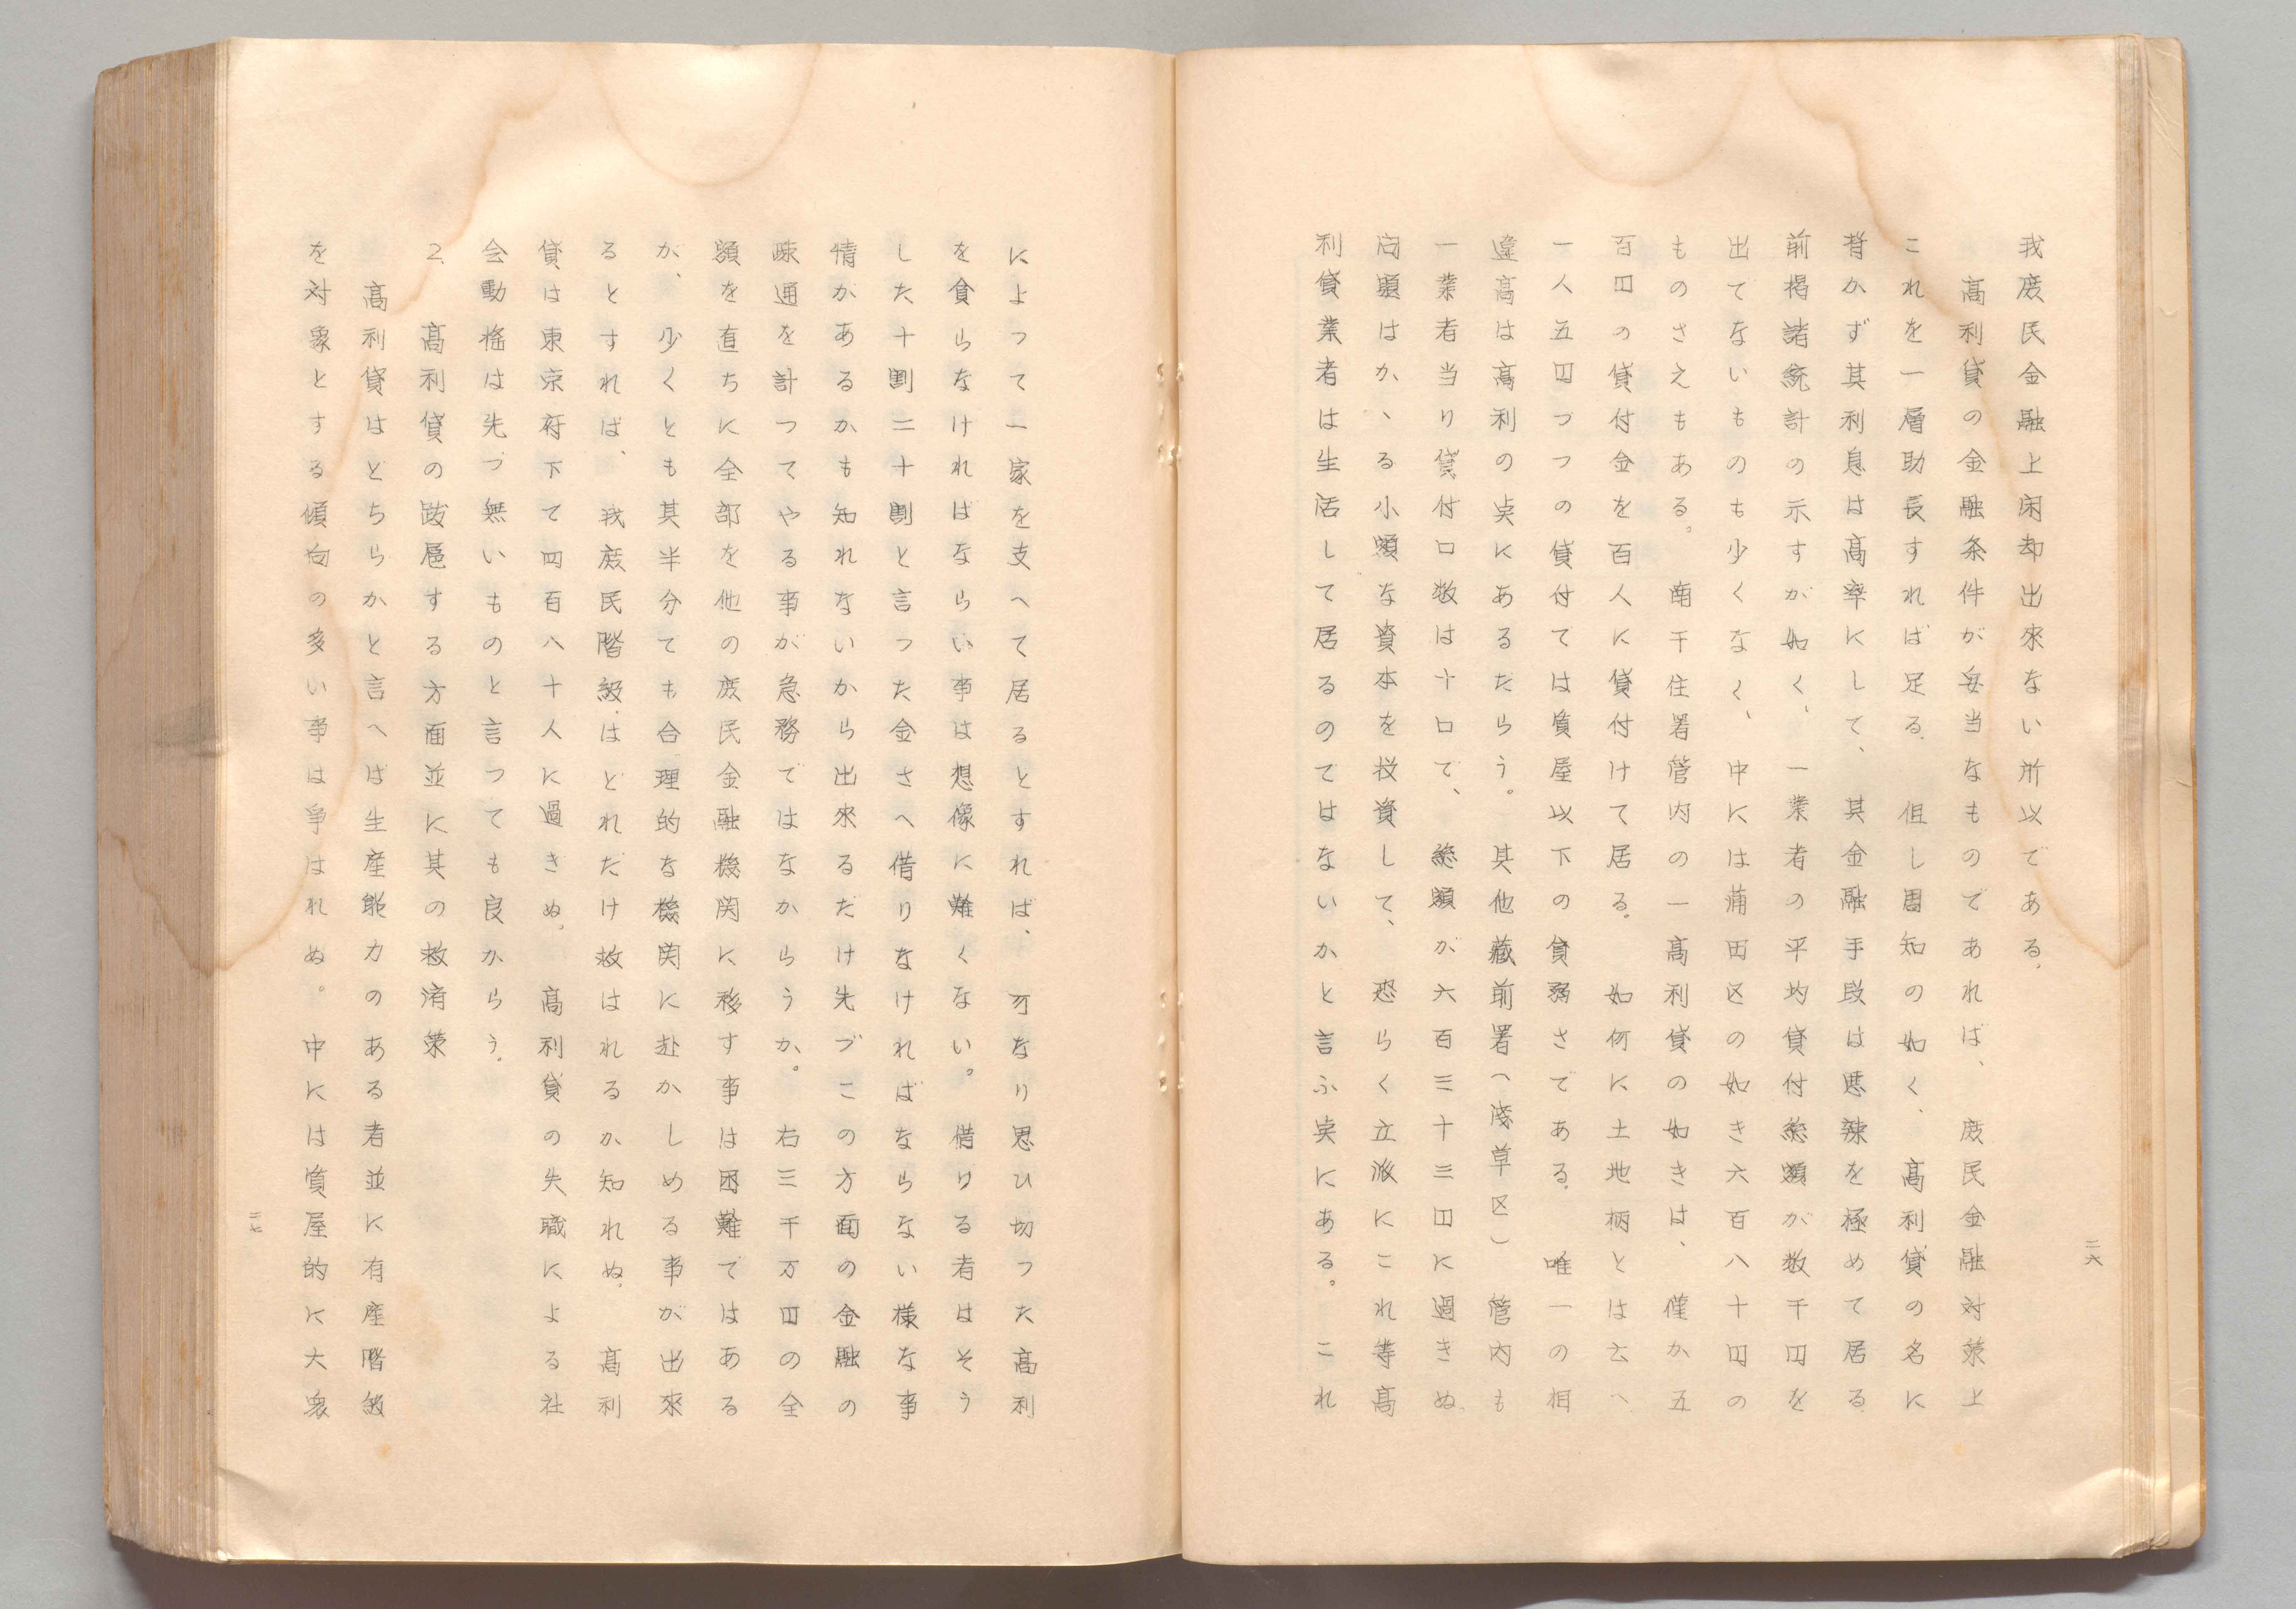 我庶民金融上閑却出來ない所以である、
高利貸の金融条件が妥当なものであれば、庶民金融対策上
これを一層助長すれば足る、但し周知の如く、高利貸の名に
背かず其利息は高率にして、其金融手段は悪辣を極めて居る
前掲諸統計の示すが如く、一業者の平均貸付総額が数千円を
出てないものも少くなく、中には蒲田区の如き六百八十円の
ものさえもある。南千住署管内の一高利貸の如きは、僅か五
百円の貸付金を百人に貸付けて居る。如何に土地柄とは云へ
一人五円づつの貸付ては質屋以下の貧弱さである。唯一の相
違高は高利の点にあるだらう。其他蔵前署(浅草区)管内も
一業者当り貸付口数は十口で、総額が六百三十三円に過きぬ。
問題はかゝる小額な資本を投資して、恐らく立派にこれ等高
利貸業者は生活して居るのてはないかと言ふ点にある。これ
二六
によって一家を支へて居るとすれば、可なり思ひ切った高利
を貪らなければならい事は想像に難くない。借りる者はそう
した十割二十割と言った金さへ借りなければならない様な事
情があるかも知れないから出來るだけ先づこの方面の金融の
疎通を計つてやる事が急務ではなからうか。右三千万円の全
額を直ちに全部を他の庶民金融機関に移す事は困難ではある
が、少くとも其半分ても合理的な機関に赴かしめる事が出來
るとすれば、我庶民階級はどれだけ救はれるか知れぬ。高利
貸は東京府下て四百八十人に過きぬ。高利貸の失職による社
会動揺は先づ無いものと言つても良からう。
2、高利貸の跋扈する方面並に其の救済策
高利貸はどちらかと言へば生産能力のある者並に有産階級
を対象とする傾向の多い事は争はれぬ。中には質屋的に大衆
二七